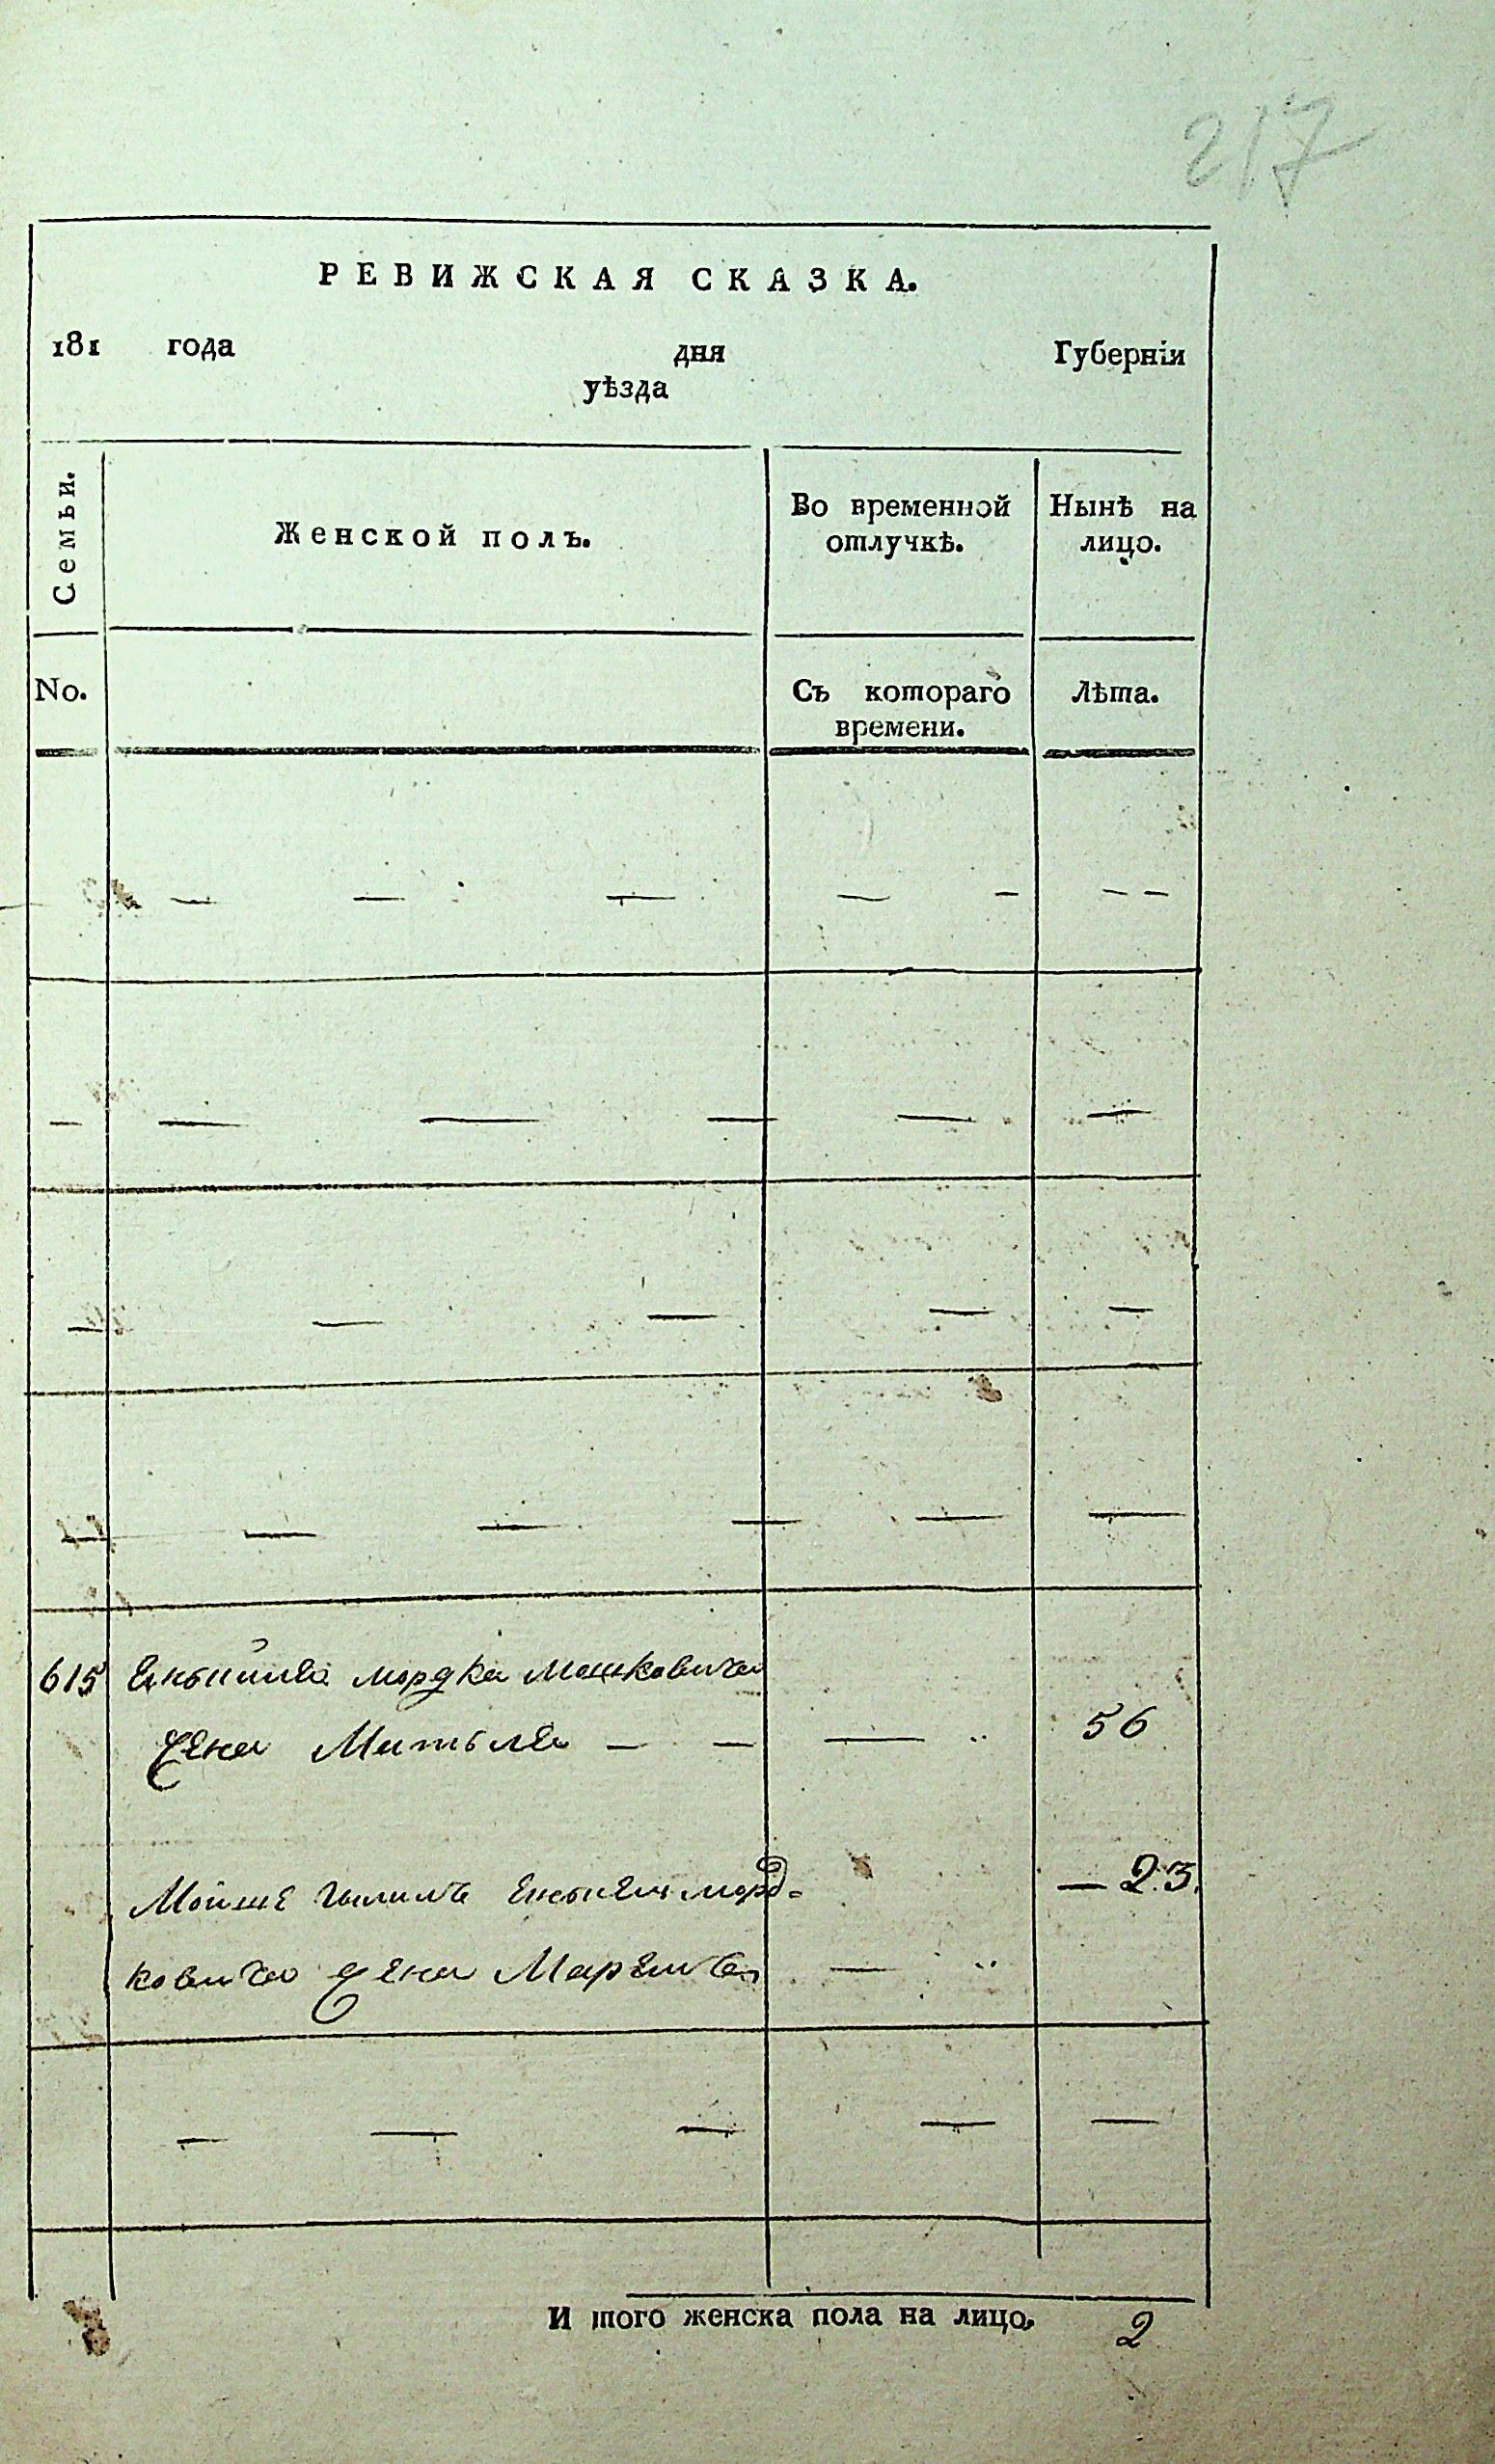 217
РЕВИЖСКАЯ СКАЗКА.
181 года дня Губерніи
уѣзда
Семьи.
Женской полъ.
Во временной отлучкѣ.
Нынѣ на лицо.
No.
Съ котораго времени.
Лѣта.
615 мордка Мошковича
жена Митьля — — — 56
Мойше морд- — 23
ковича жена —
И того женска пола на лицо, 2